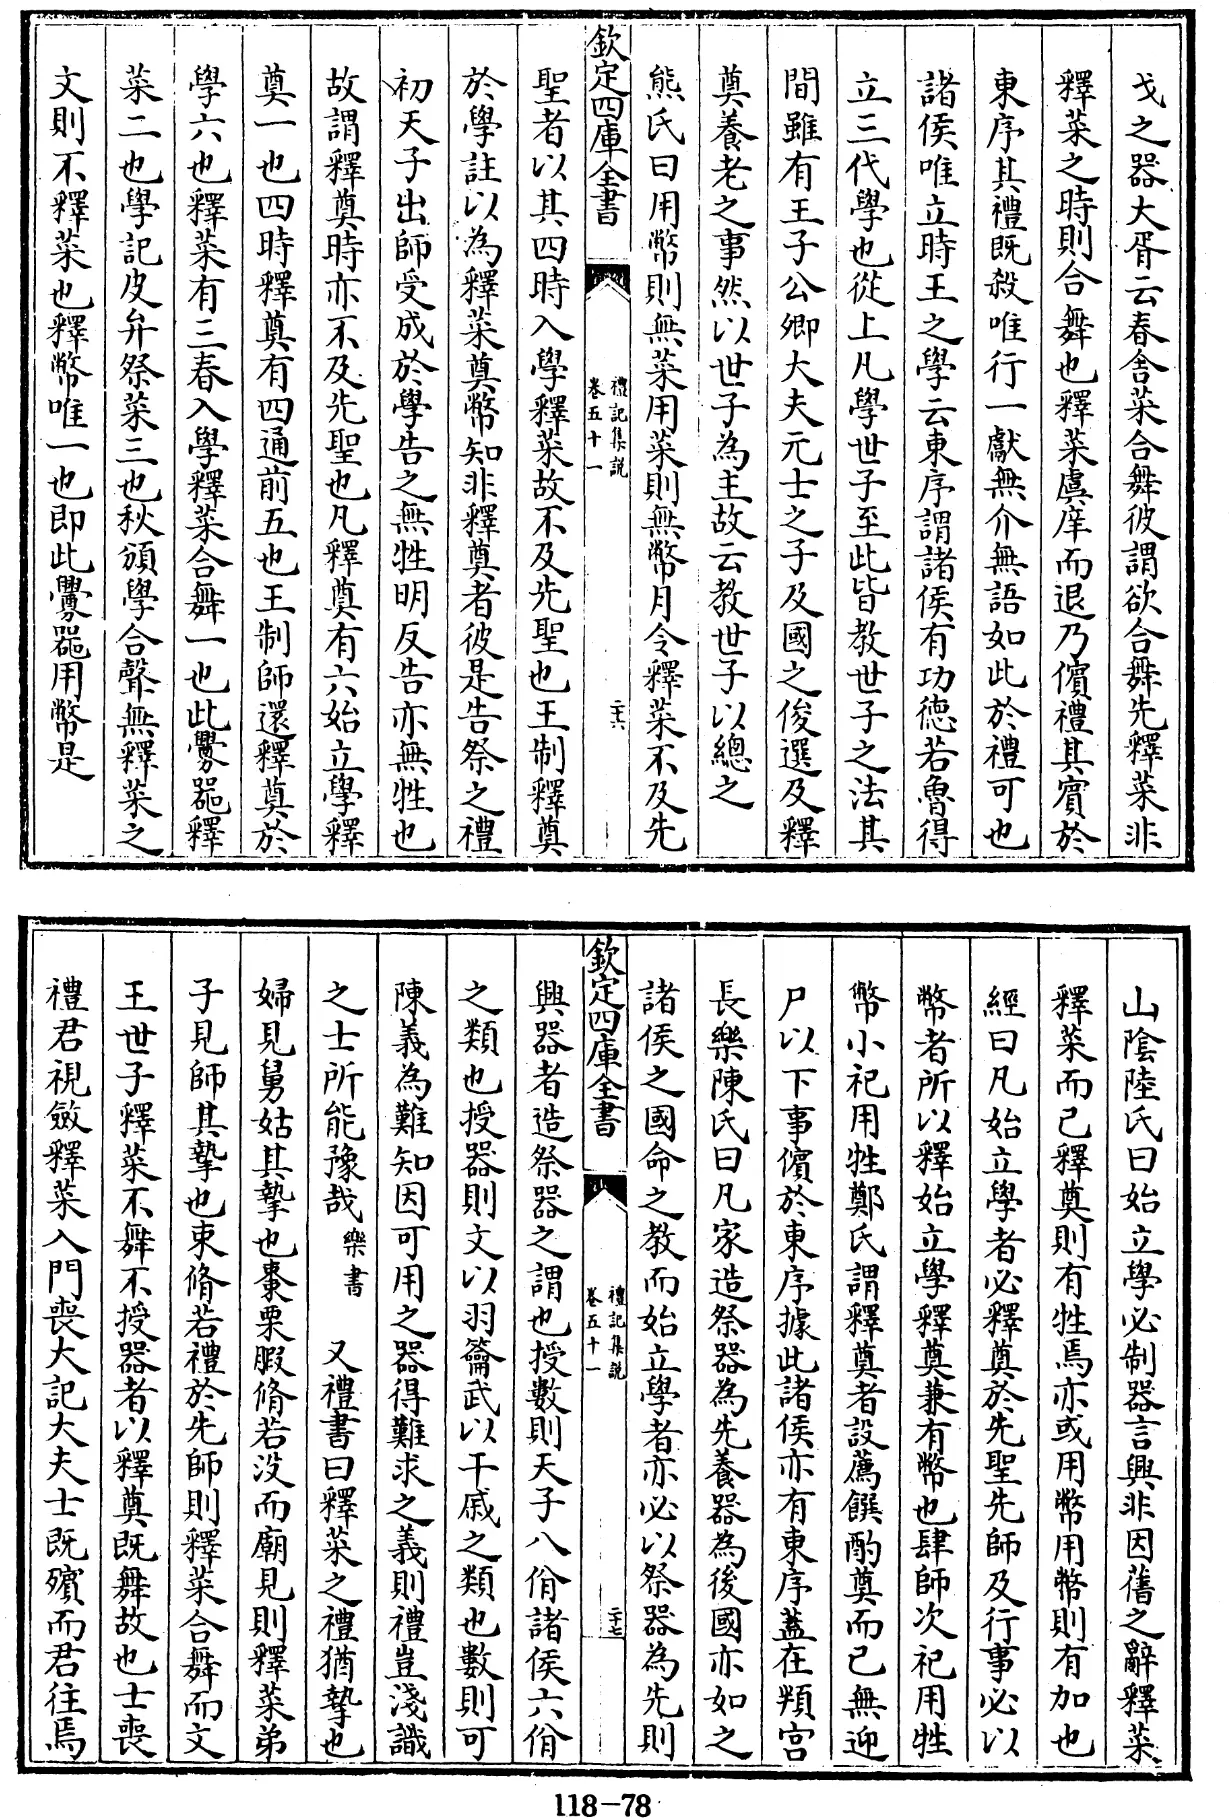 戈之器大胥云春舎菜合舞彼謂欲合舞先釋菜非
釋菜之時則合舞也釋菜虞庠而退乃儐禮其賓於
東序其禮既殺唯行一獻無介無語如此於禮可也
諸侯唯立時王之學云東序謂諸侯有功德若魯得
立三代學也從上凡學世子至此皆教世子之法其
間雖有王子公卿大夫元士之子及國之俊選及釋
奠養老之事然以世子為主故云教世子以總之
熊氏曰用幣則無菜用菜則無幣月令釋菜不及先
欽定四庫全書
禮記集説
卷五十一
二十六
聖者以其四時入學釋菜故不及先聖也王制釋奠
於學註以為釋菜奠幣知非釋奠者彼是告祭之禮
初天子出師受成於學告之無牲明反告亦無牲也
故謂釋奠時亦不及先聖也凡釋奠有六始立學釋
奠一也四時釋奠有四通前五也王制師還釋奠於
學六也釋菜有三春入學釋菜合舞一也此釁器釋
菜二也學記皮弁祭菜三也秋頒學合聲無釋菜之
文則不釋菜也釋幣唯一也即此釁器用幣是
山陰陸氏曰始立學必制器言興非因舊之辭釋菜
釋菜而已釋奠則有牲焉亦或用幣用幣則有加也
經曰凡始立學者必釋奠於先聖先師及行事必以
幣者所以釋始立學釋奠兼有幣也肆師次祀用牲
幣小祀用牲鄭氏謂釋奠者設薦饌酌奠而已無迎
尸以下事儐於東序據此諸侯亦有東序蓋在頖宫
長樂陳氏曰凡家造祭器為先養器為後國亦如之
諸侯之國命之教而始立學者亦必以祭器為先則
欽定四庫全書
禮記集説
卷五十一
二十七
興器者造祭器之謂也授數則天子八佾諸侯六佾
之類也授器則文以羽籥武以干戚之類也數則可
陳義為難知因可用之器得難求之義則禮豈淺識
之士所能豫哉 樂書 又禮書曰釋菜之禮猶摯也
婦見舅姑其摯也棗栗腵脩若没而廟見則釋菜弟
子見師其摯也束脩若禮於先師則釋菜合舞而文
王世子釋菜不舞不授器者以釋奠既舞故也士喪
禮君視斂釋菜入門喪大記大夫士既殯而君往焉
118-78